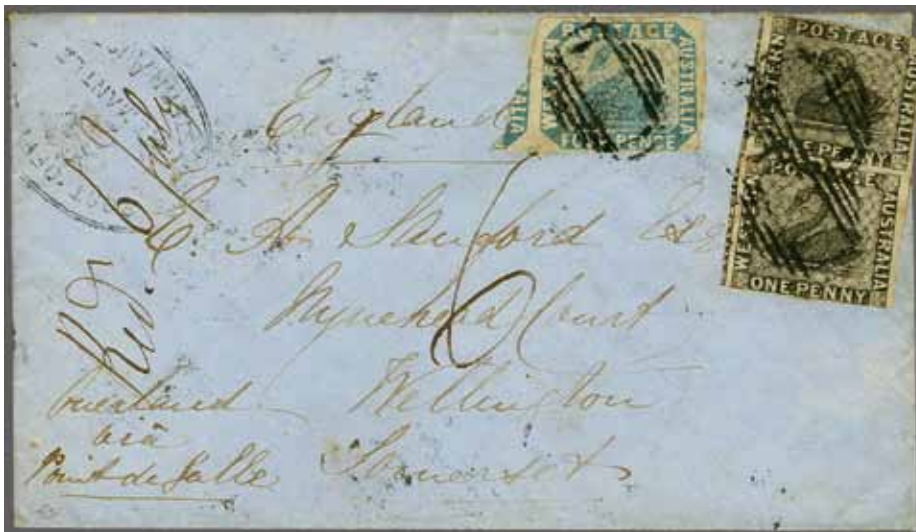 POSTAGE
WESTERN
AUSTRALIA
FOUR PENCE
AUSTRALIA
POSTAGE
WESTERN
AUSTRALIA
ONE PENNY
POSTAGE
WESTERN
AUSTRALIA
ONE PENNY
England
A. Sanford Esq
Nynehead Court
Wellington
Somerset
6
Overland
via
Point de Galle